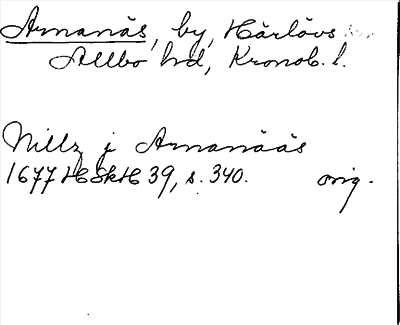 Arnanäs, by, Härlövs
Allbo hd, Kronob. l.
Nillz i Arnanääs
1677 HSkH 39, s. 340. orig.